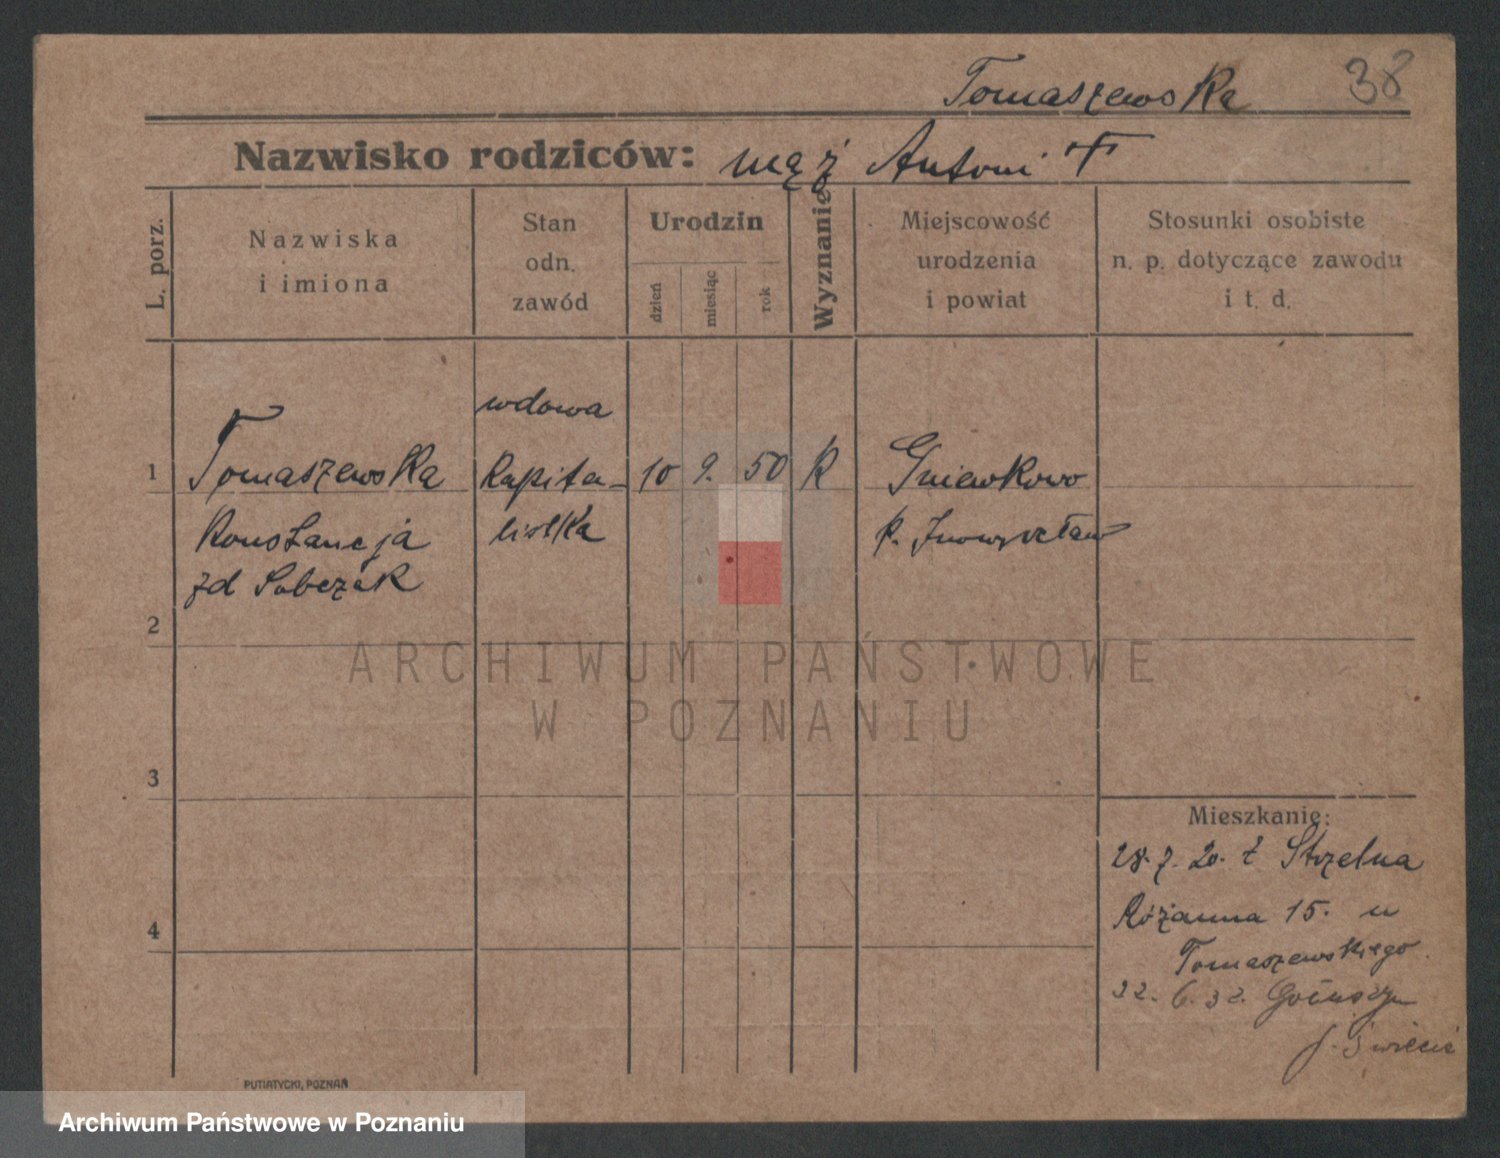 Tomaszewska 38
Nazwisko rodziców: mąż Antoni +
L. porz.
Nazwiska
i imiona
Stan
odn.
zawód
Urodzin
dzień
miesiąc
rok
Wyznanie
Miejscowość
urodzenia
i powiat
Stosunki osobiste
n. p. dotyczące zawodu
i t. d.
wdowa
1 Tomaszewska Kapita- 10 9. 50 K Gniewkowo
Konstancja listka p. Inowrocław
zd Sobczak
2
ARCHIWUM PAŃSTWOWE
W POZNANIU
3
Mieszkanie:
28. 7. 20. z Strzelna
4 Różanna 15. u
Tomaszewskiego.
22. 6. 32.
PUTIATYCKI, POZNAŃ
Archiwum Państwowe w Poznaniu